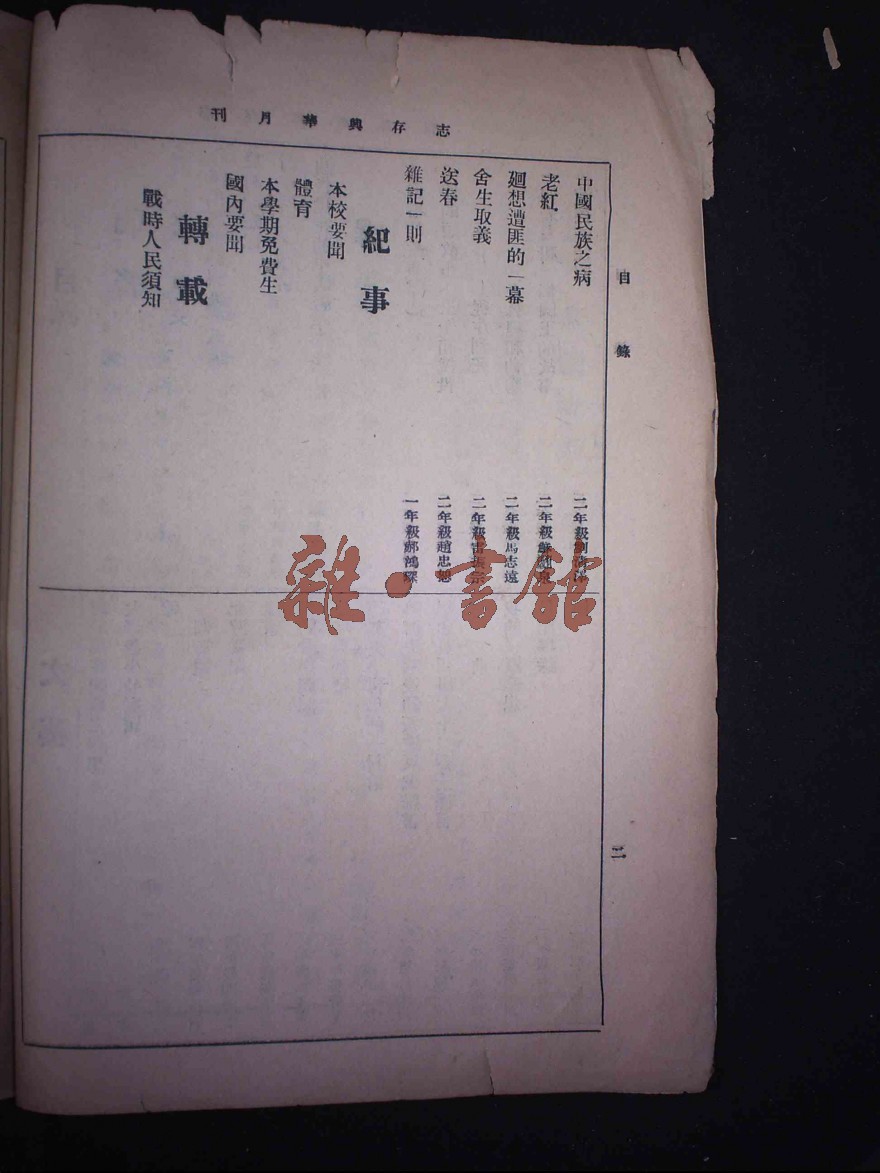 志存興華月刊
目錄
二
中國民族之病 二年級
老紅 二年級
廻想遭匪的一幕 二年級馬志遠
舍生取義 二年級雷振宗
送春 二年級趙忠恕
雜記一則 一年級郝鴻琛
紀事
本校要聞
體育
本學期免費生
國內要聞
轉載
戰時人民須知
雜·書館